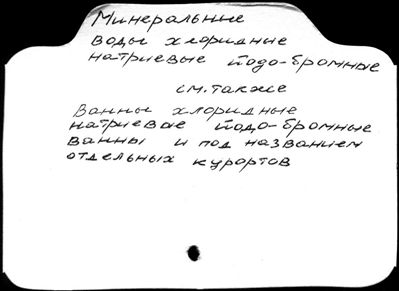 Минеральные
воды хлоридные
натриевые йодо-бромные
см. также
Ванны хлоридные
натриевые йодо-бромные
ванны и под названием
отдельных курортов